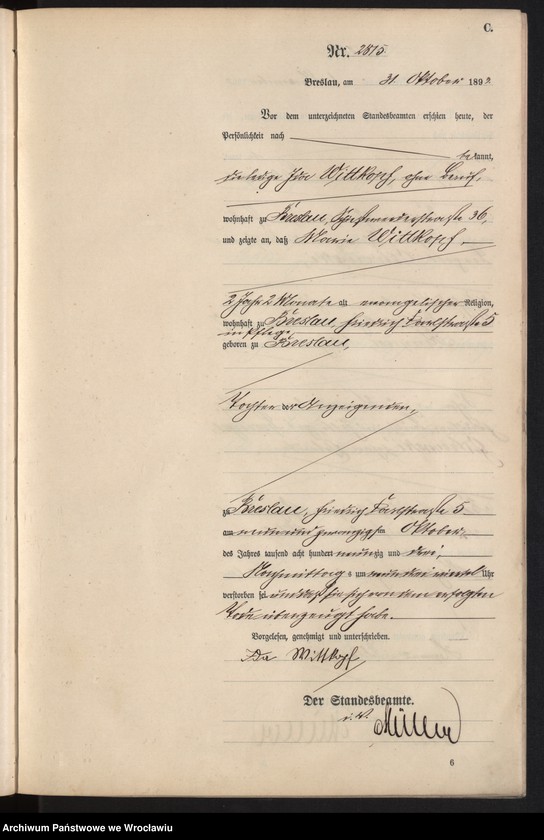 C.
Nr. 2815
Breslau, am 31 Oktober 1892
Vor dem unterzeichneten Standesbeamten erschien heute, der
Persönlichkeit nach
bekannt,
die ledige Ida Wittkopf, ohne Beruf,
wohnhaft zu Breslau, 36,
und zeigte an, daß Marie Wittkopf,
2 Jahr 2 Monate alt evangelischer Religion,
wohnhaft zu Breslau, Friedrich Karlstraße 5
in Pflege,
geboren zu Breslau,
Tochter der Anzeigenden,
zu Breslau, Friedrich Karlstraße 5
am neunundzwanzigsten Oktober
des Jahres tausend acht hundert neunzig und
Nachmittags um Uhr
verstorben sei, und daß sie sich von dem erfolgten
Tode überzeugt habe.
Vorgelesen, genehmigt und unterschrieben.
Ida Wittkopf
Der Standesbeamte.
i. V. Müller
6
Archiwum Państwowe we Wrocławiu